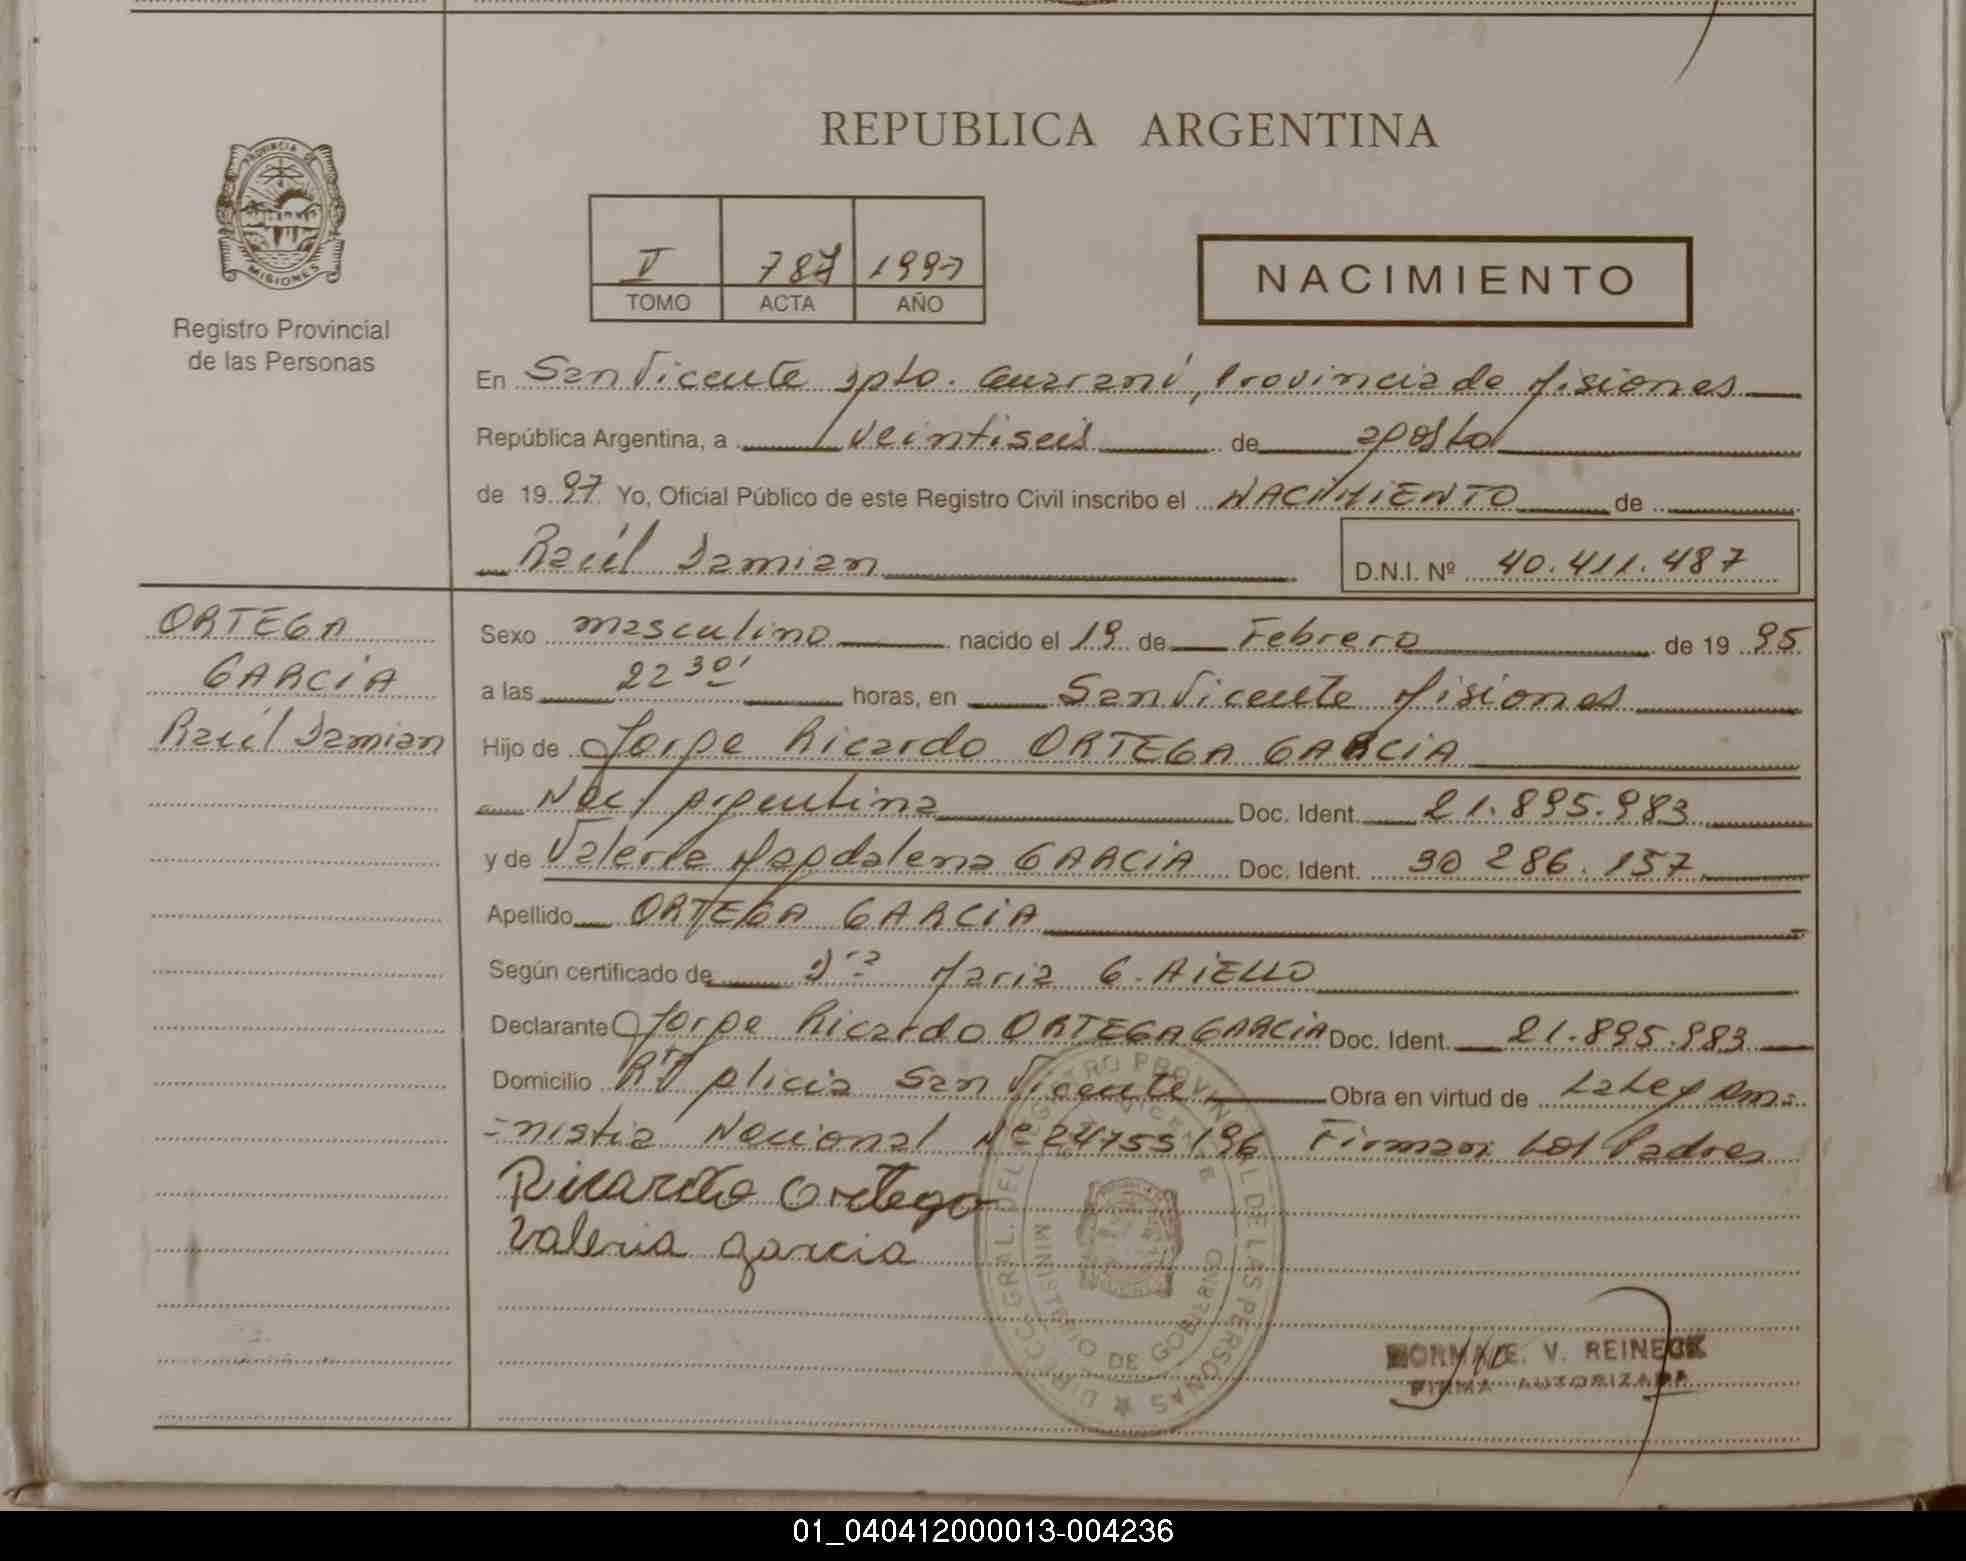 REPUBLICA ARGENTINA
PROVINCIA DE
MISIONES
Registro Provincial
de las Personas
V 787 1997
TOMO ACTA AÑO
NACIMIENTO
En San Vicente Dpto. Guaraní, Provincia de Misiones
República Argentina, a veintiseis de agosto
de 19 97 Yo, Oficial Público de este Registro Civil inscribo el NACIMIENTO de
Raúl Damian D.N.I. Nº 40.411.487
ORTEGA
GARCIA
Raúl Damian
Sexo masculino nacido el 19 de Febrero de 19 95
a las 22 30' horas, en San Vicente Misiones
Hijo de Jorge Ricardo ORTEGA GARCIA
Nac/ Argentina Doc. Ident. 21.895.983
y de Valeria Magdalena GARCIA Doc. Ident. 30 286.157
Apellido ORTEGA GARCIA
Según certificado de Dra Maria G. AIELLO
Declarante Jorge Ricardo ORTEGA GARCIA Doc. Ident. 21.895.983
Domicilio San Vicente Obra en virtud de La Ley Am-
-nistia Nacional Nº 24755/96 Firman Los Padres
Ricardo Ortega
Valeria garcia
DIRECC. GRAL. DEL REGISTRO PROVINCIAL DE LAS PERSONAS
SAN VICENTE
MINISTERIO DE GOBIERNO
NORMA E. V. REINECK
FIRMA AUTORIZADA
01_040412000013-004236